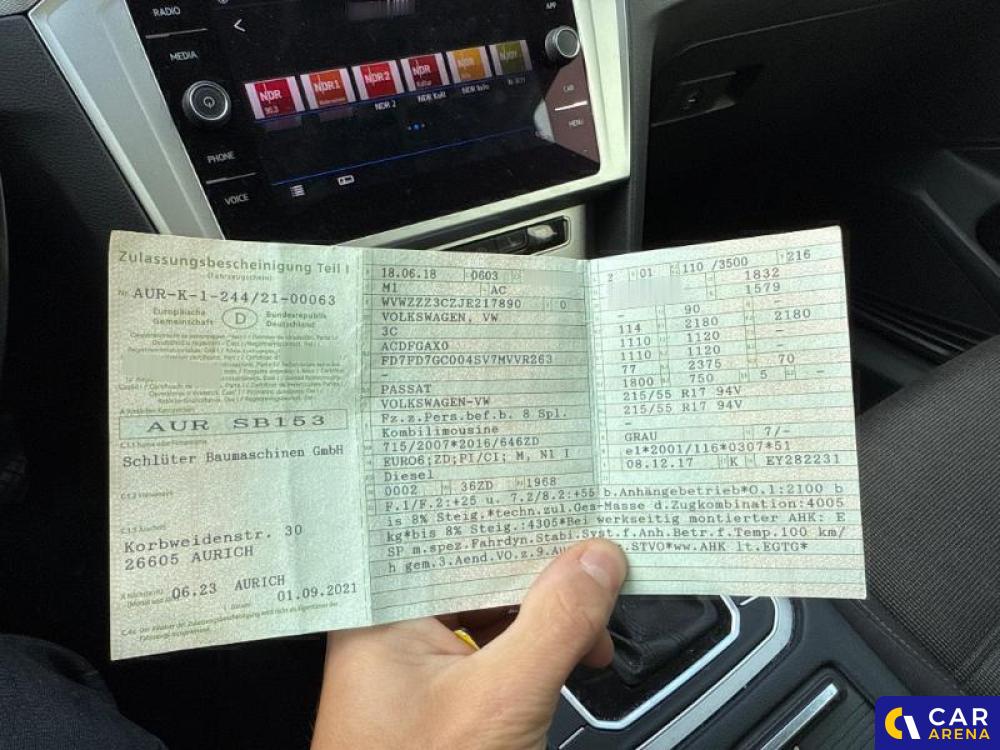 RADIO
MEDIA
PHONE
VOICE
APP
CAR
MENU
NDR
90.3
NDR1
NDR2
NDR
Kultur
NDR
NDR 2
NDR Kult
NDR Info
Zulassungsbescheinigung Teil I
(Fahrzeugschein)
Nr. AUR-K-1-244/21-00063
Europäische Gemeinschaft
D
Bundesrepublik Deutschland
AUR SB153
C.1.1 Name oder Firmenname
Schlüter Baumaschinen GmbH
C.1.2 Vorname(n)
C.1.3 Anschrift
Korbweidenstr. 30
26605 AURICH
06.23 AURICH
01.09.2021
18.06.18 0603
M1 AC
WVWZZZ3CZJE217890 0
VOLKSWAGEN, VW
3C
ACDFGAX0
FD7FD7GC004SV7MVVR263
–
PASSAT
VOLKSWAGEN-VW
Fz.z.Pers.bef.b. 8 Spl.
Kombilimousine
715/2007*2016/646ZD
EURO6;ZD;PI/CI; M, N1 I
Diesel
0002 36ZD 1968
2 01 110 /3500 216
1832
1579
– 90 –
114 2180 2180
1110 1120 –
1110 1120 –
77 2375 70
1800 750 5 –
215/55 R17 94V
215/55 R17 94V
–
GRAU 7/–
e1*2001/116*0307*51
08.12.17 K EY282231
F.1/F.2:+25 u. 7.2/8.2:+55 b.Anhängebetrieb*O.1:2100 b
is 8% Steig.*techn.zul.Ges-Masse d.Zugkombination:4005
kg*bis 8% Steig.:4305*Bei werkseitig montierter AHK: E
SP m.spez.Fahrdyn.Stabi.Syst.f.Anh.Betr.f.Temp.100 km/
h gem.3.Aend.VO.z.9.Au STVO*ww.AHK lt.EGTG*
CAR
ARENA